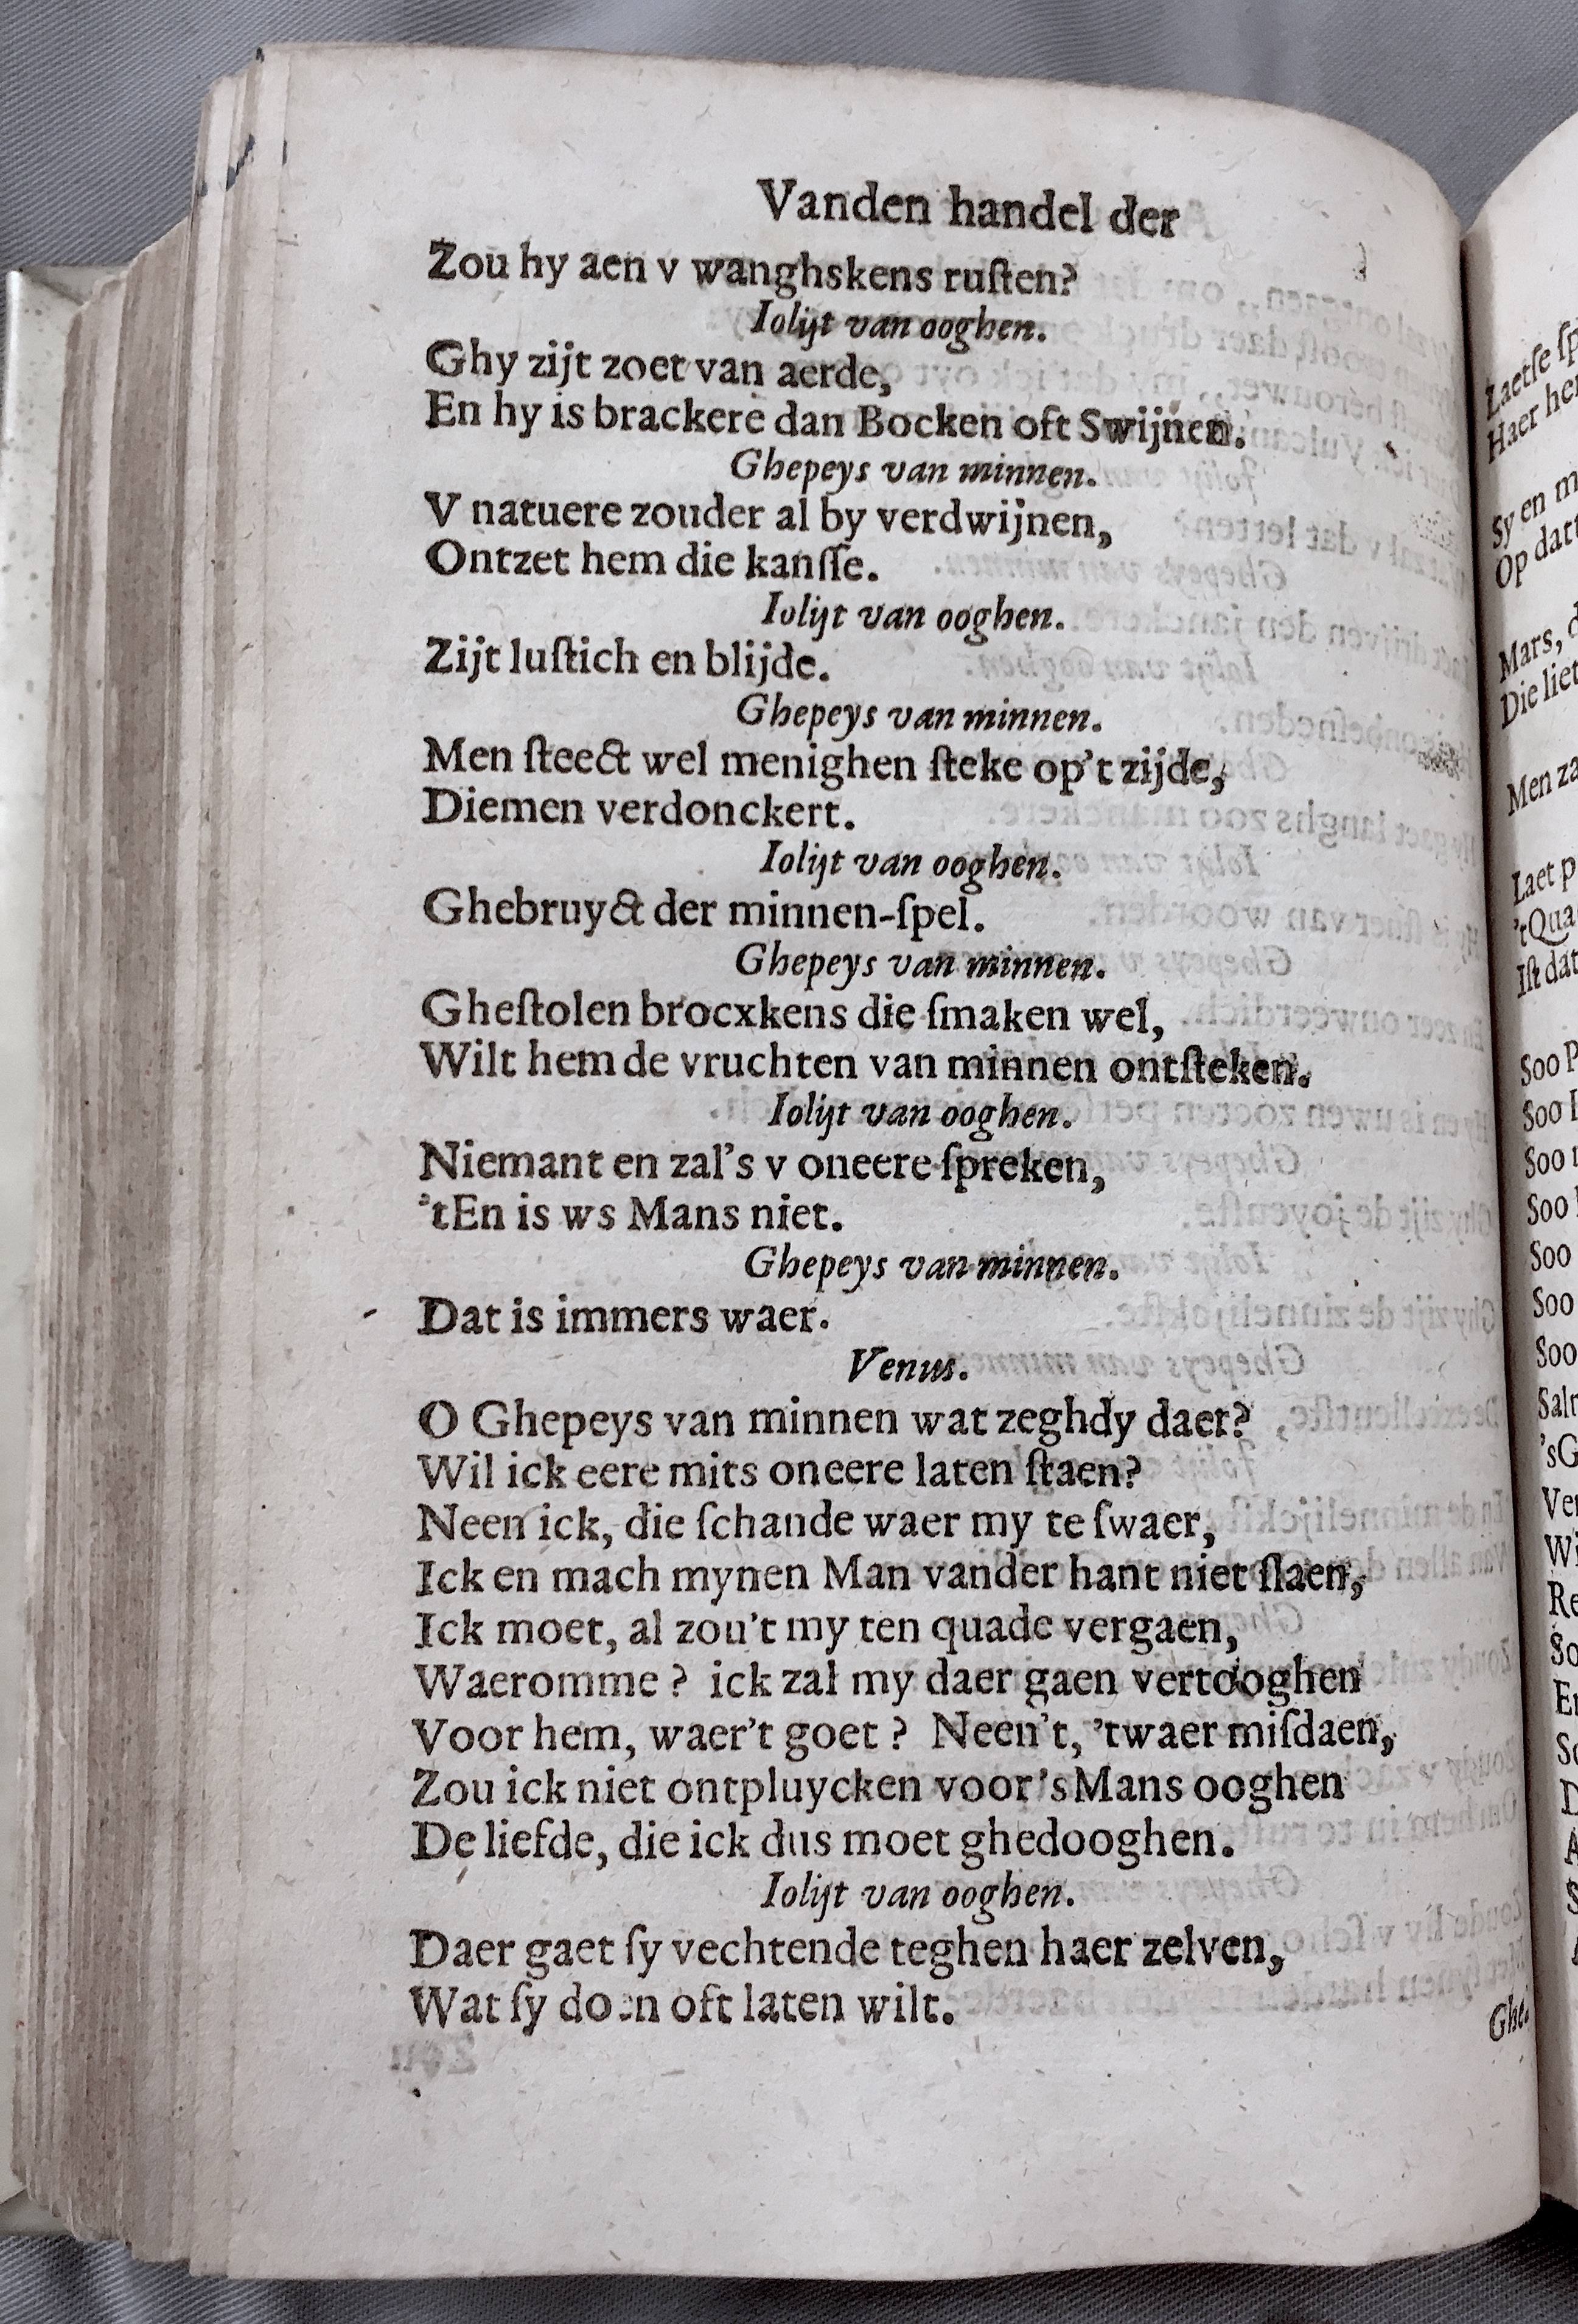 Vanden handel der
Zou hy aen v wanghskens ruſten?
Iolijt van ooghen.
Ghy zijt zoet van aerde,
En hy is brackere dan Bocken oft Swijnen.
Ghepeys van minnen.
V natuere zouder al by verdwijnen,
Ontzet hem die kanſſe.
Iolijt van ooghen.
Zijt luſtich en blijde.
Ghepeys van minnen.
Men ſteect wel menighen ſteke op't zijde,
Diemen verdonckert.
Iolijt van ooghen.
Ghebruyct der minnen-ſpel.
Ghepeys van minnen.
Gheſtolen brocxkens die ſmaken wel,
Wilt hem de vruchten van minnen ontſteken.
Iolijt van ooghen.
Niemant en zal's v oneere ſpreken,
'tEn is ws Mans niet.
Ghepeys van minnen.
Dat is immers waer.
Venus.
O Ghepeys van minnen wat zeghdy daer?
Wil ick eere mits oneere laten ſtaen?
Neen ick, die ſchande waer my te ſwaer,
Ick en mach mynen Man vander hant niet ſlaen,
Ick moet, al zou't my ten quade vergaen,
Waeromme? ick zal my daer gaen vertooghen
Voor hem, waer't goet? Neen't, 'twaer miſdaen,
Zou ick niet ontpluycken voor 's Mans ooghen
De liefde, die ick dus moet ghedooghen.
Iolijt van ooghen.
Daer gaet ſy vechtende teghen haer zelven,
Wat ſy doen oft laten wilt.
Laetſe
Haer
Sy en
Op
Mars,
Die liet
Men
Laet
Iſt dat
Soo
Soo
Soo
Soo
Soo
Soo
Soo